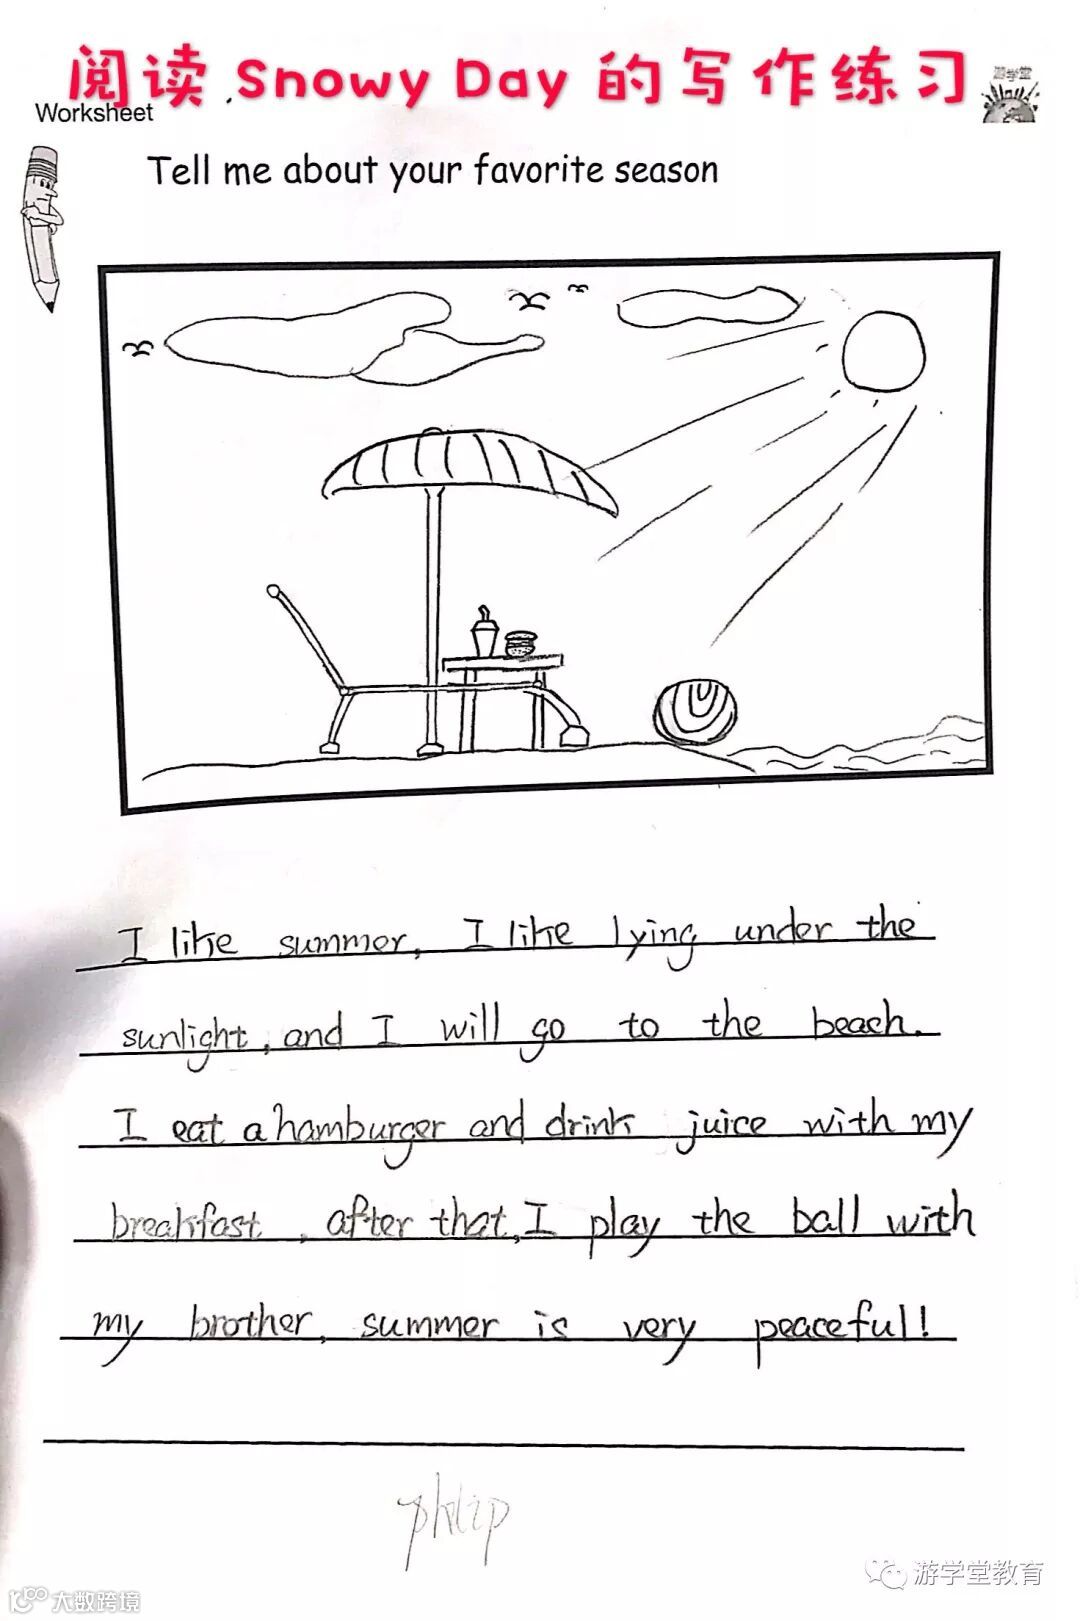 阅读 Snowy Day 的写作练习
游学堂
Worksheet
Tell me about your favorite season
I like summer, I like lying under the
sunlight, and I will go to the beach.
I eat a hamburger and drink juice with my
breakfast, after that, I play the ball with
my brother, summer is very peaceful!
philip
游学堂教育
大数跨境